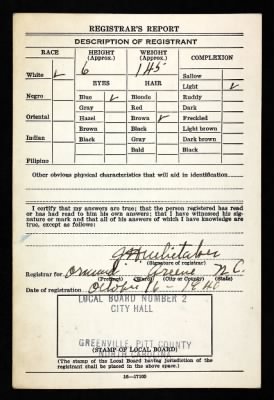 REGISTRAR'S REPORT
DESCRIPTION OF REGISTRANT
RACE HEIGHT (Approx.) WEIGHT (Approx.) COMPLEXION
6 145
White ✓ EYES HAIR Sallow
Light ✓
Negro Blue ✓ Blonde Ruddy
Gray Red Dark
Oriental Hazel Brown ✓ Freckled
Brown Black Light brown
Indian Black Gray Dark brown
Bald Black
Filipino
Other obvious physical characteristics that will aid in identification
I certify that my answers are true; that the person registered has read or has had read to him his own answers; that I have witnessed his signature or mark and that all of his answers of which I have knowledge are true, except as follows:
Whitaker
(Signature of registrar)
Registrar for Ormond Greene N.C.
(Precinct) (Ward) (City or County) (State)
Date of registration October 16 - 1940
LOCAL BOARD NUMBER 2
CITY HALL
GREENVILLE, PITT COUNTY
(STAMP OF LOCAL BOARD)
NORTH CAROLINA
(The stamp of the Local Board having jurisdiction of the registrant shall be placed in the above space.)
16—17105